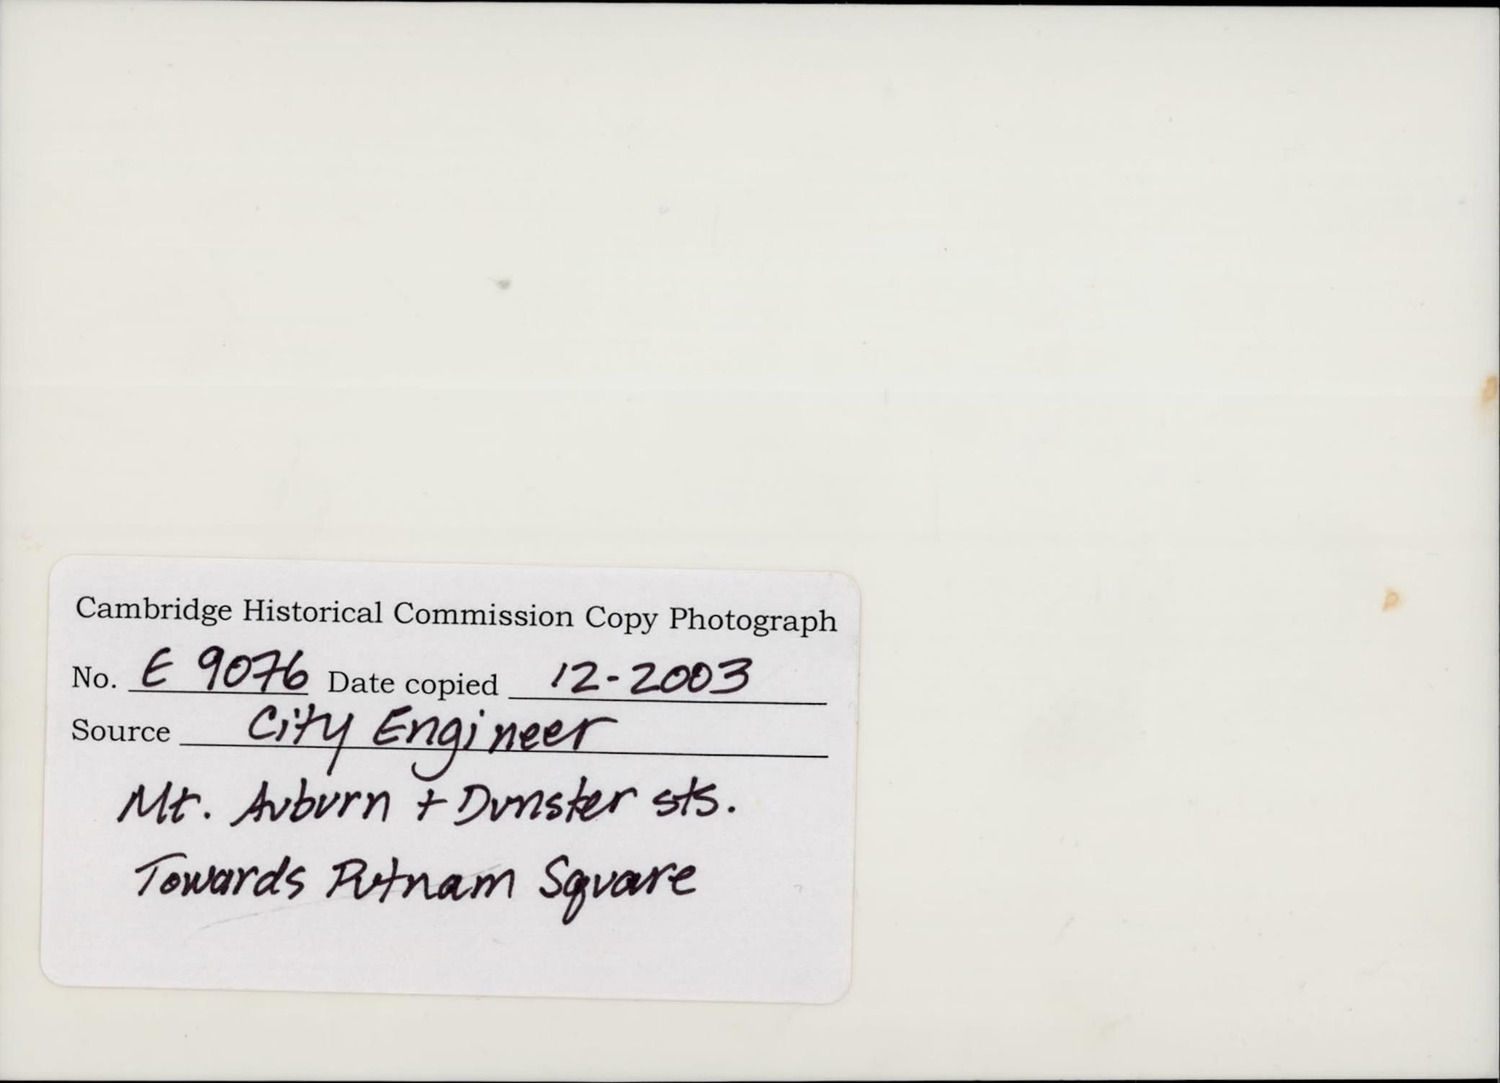 Cambridge Historical Commission Copy Photograph
No. E 9076 Date copied 12-2003
Source City Engineer
Mt. Auburn + Dunster sts.
Towards Putnam Square